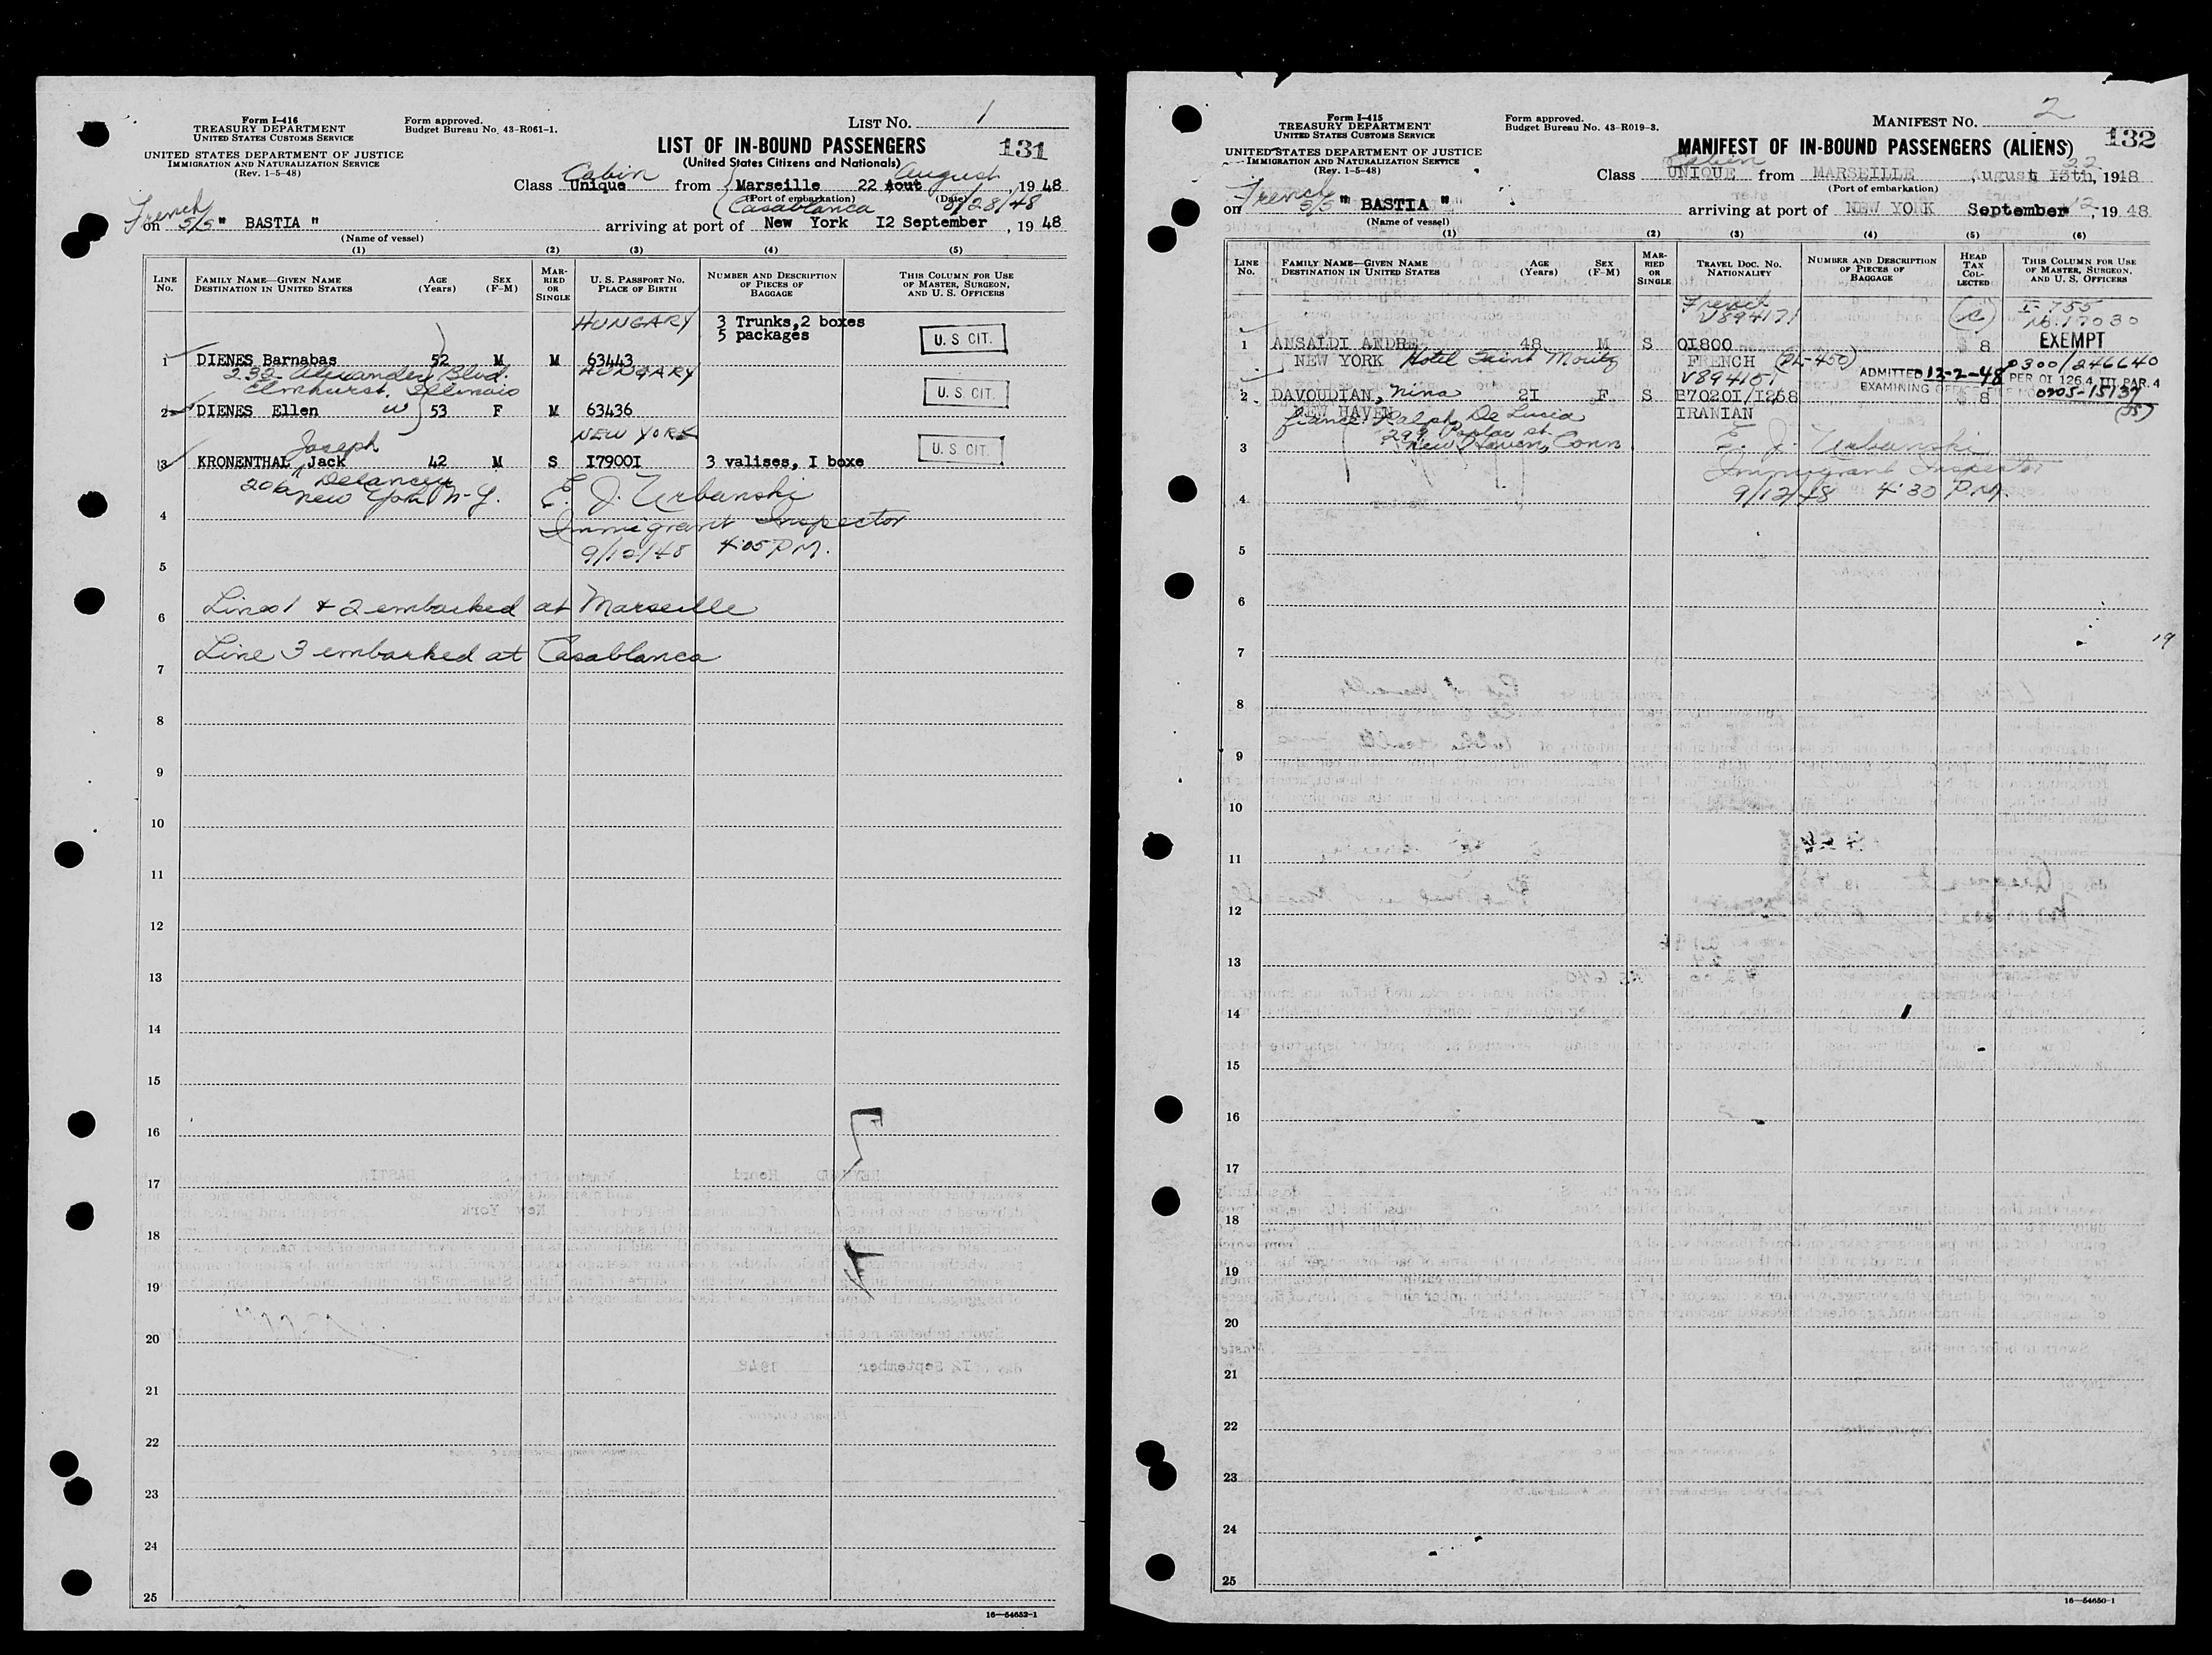 Form I-416
TREASURY DEPARTMENT
UNITED STATES CUSTOMS SERVICE
Form approved.
Budget Bureau No. 43-R061-1.
LIST NO. 1
UNITED STATES DEPARTMENT OF JUSTICE
IMMIGRATION AND NATURALIZATION SERVICE
(Rev. 1-5-48)
LIST OF IN-BOUND PASSENGERS
(United States Citizens and Nationals)
131
Cabin August
Class Unique from Marseille 22 Aout, 1948
(Port of embarkation) (Date)
Casablanca 8/28/48
French
on S/S " BASTIA "
(Name of vessel)
arriving at port of New York I2 September, 1948
(1) (2) (3) (4) (5)
LINE No.
FAMILY NAME—GIVEN NAME
DESTINATION IN UNITED STATES
AGE (Years)
SEX (F-M)
MARRIED OR SINGLE
U. S. PASSPORT NO.
PLACE OF BIRTH
NUMBER AND DESCRIPTION OF PIECES OF BAGGAGE
THIS COLUMN FOR USE OF MASTER, SURGEON, AND U. S. OFFICERS
HUNGARY 3 Trunks,2 boxes
5 packages
U. S. CIT.
1 DIENES Barnabas 52 M M 63443
232 Alexander Blvd. HUNGARY
Elmhurst, Illinois
U. S. CIT.
2 DIENES Ellen w 53 F M 63436
Joseph NEW YORK
U. S. CIT.
3 KRONENTHAL Jack 42 M S I7900I 3 valises, I boxe
206 Delancey
New York N-Y.
E. J. Urbanski
4 Immigrant Inspector
9/12/48 4:05 P.M.
5
Lines 1 & 2 embarked at Marseille
6
Line 3 embarked at Casablanca
7
8
9
10
11
12
13
14
15
16
17
18
19
20
21
22
23
24
25
16—54652-1
Form I-415
TREASURY DEPARTMENT
UNITED STATES CUSTOMS SERVICE
Form approved.
Budget Bureau No. 43-R019-3.
MANIFEST NO. 2
UNITED STATES DEPARTMENT OF JUSTICE
IMMIGRATION AND NATURALIZATION SERVICE
(Rev. 1-5-48)
MANIFEST OF IN-BOUND PASSENGERS (ALIENS)
132
Cabin 22
Class UNIQUE from MARSEILLE August 13th, 1948
(Port of embarkation)
French
on S/S " BASTIA "
(Name of vessel)
arriving at port of NEW YORK September 12, 1948
(1) (2) (3) (4) (5) (6)
LINE No.
FAMILY NAME—GIVEN NAME
DESTINATION IN UNITED STATES
AGE (Years)
SEX (F-M)
MARRIED OR SINGLE
TRAVEL DOC. NO.
NATIONALITY
NUMBER AND DESCRIPTION OF PIECES OF BAGGAGE
HEAD TAX COLLECTED
THIS COLUMN FOR USE OF MASTER, SURGEON, AND U. S. OFFICERS
French I-755
V894171 No. 17030
EXEMPT
1 ANSALDI ANDRE 48 M S OI800 $ 8
NEW YORK Hotel Saint Moritz FRENCH (PL-450) 0300/246640
V894151 ADMITTED 12-2-48 PER OI 126.4 III PAR. 4
2 DAVOUDIAN, Nina 2I F S B7020I/I268 $ 8 0905-15137
NEW HAVEN IRANIAN
fiance: Ralph De Lucia
299 Poplar st.
New Haven, Conn.
3 E. J. Urbanski
Immigrant Inspector
4 9/12/48 4:30 P.M.
5
6
7
8
9
10
11
12
13
14
15
16
17
18
19
20
21
22
23
24
25
16—54650-1